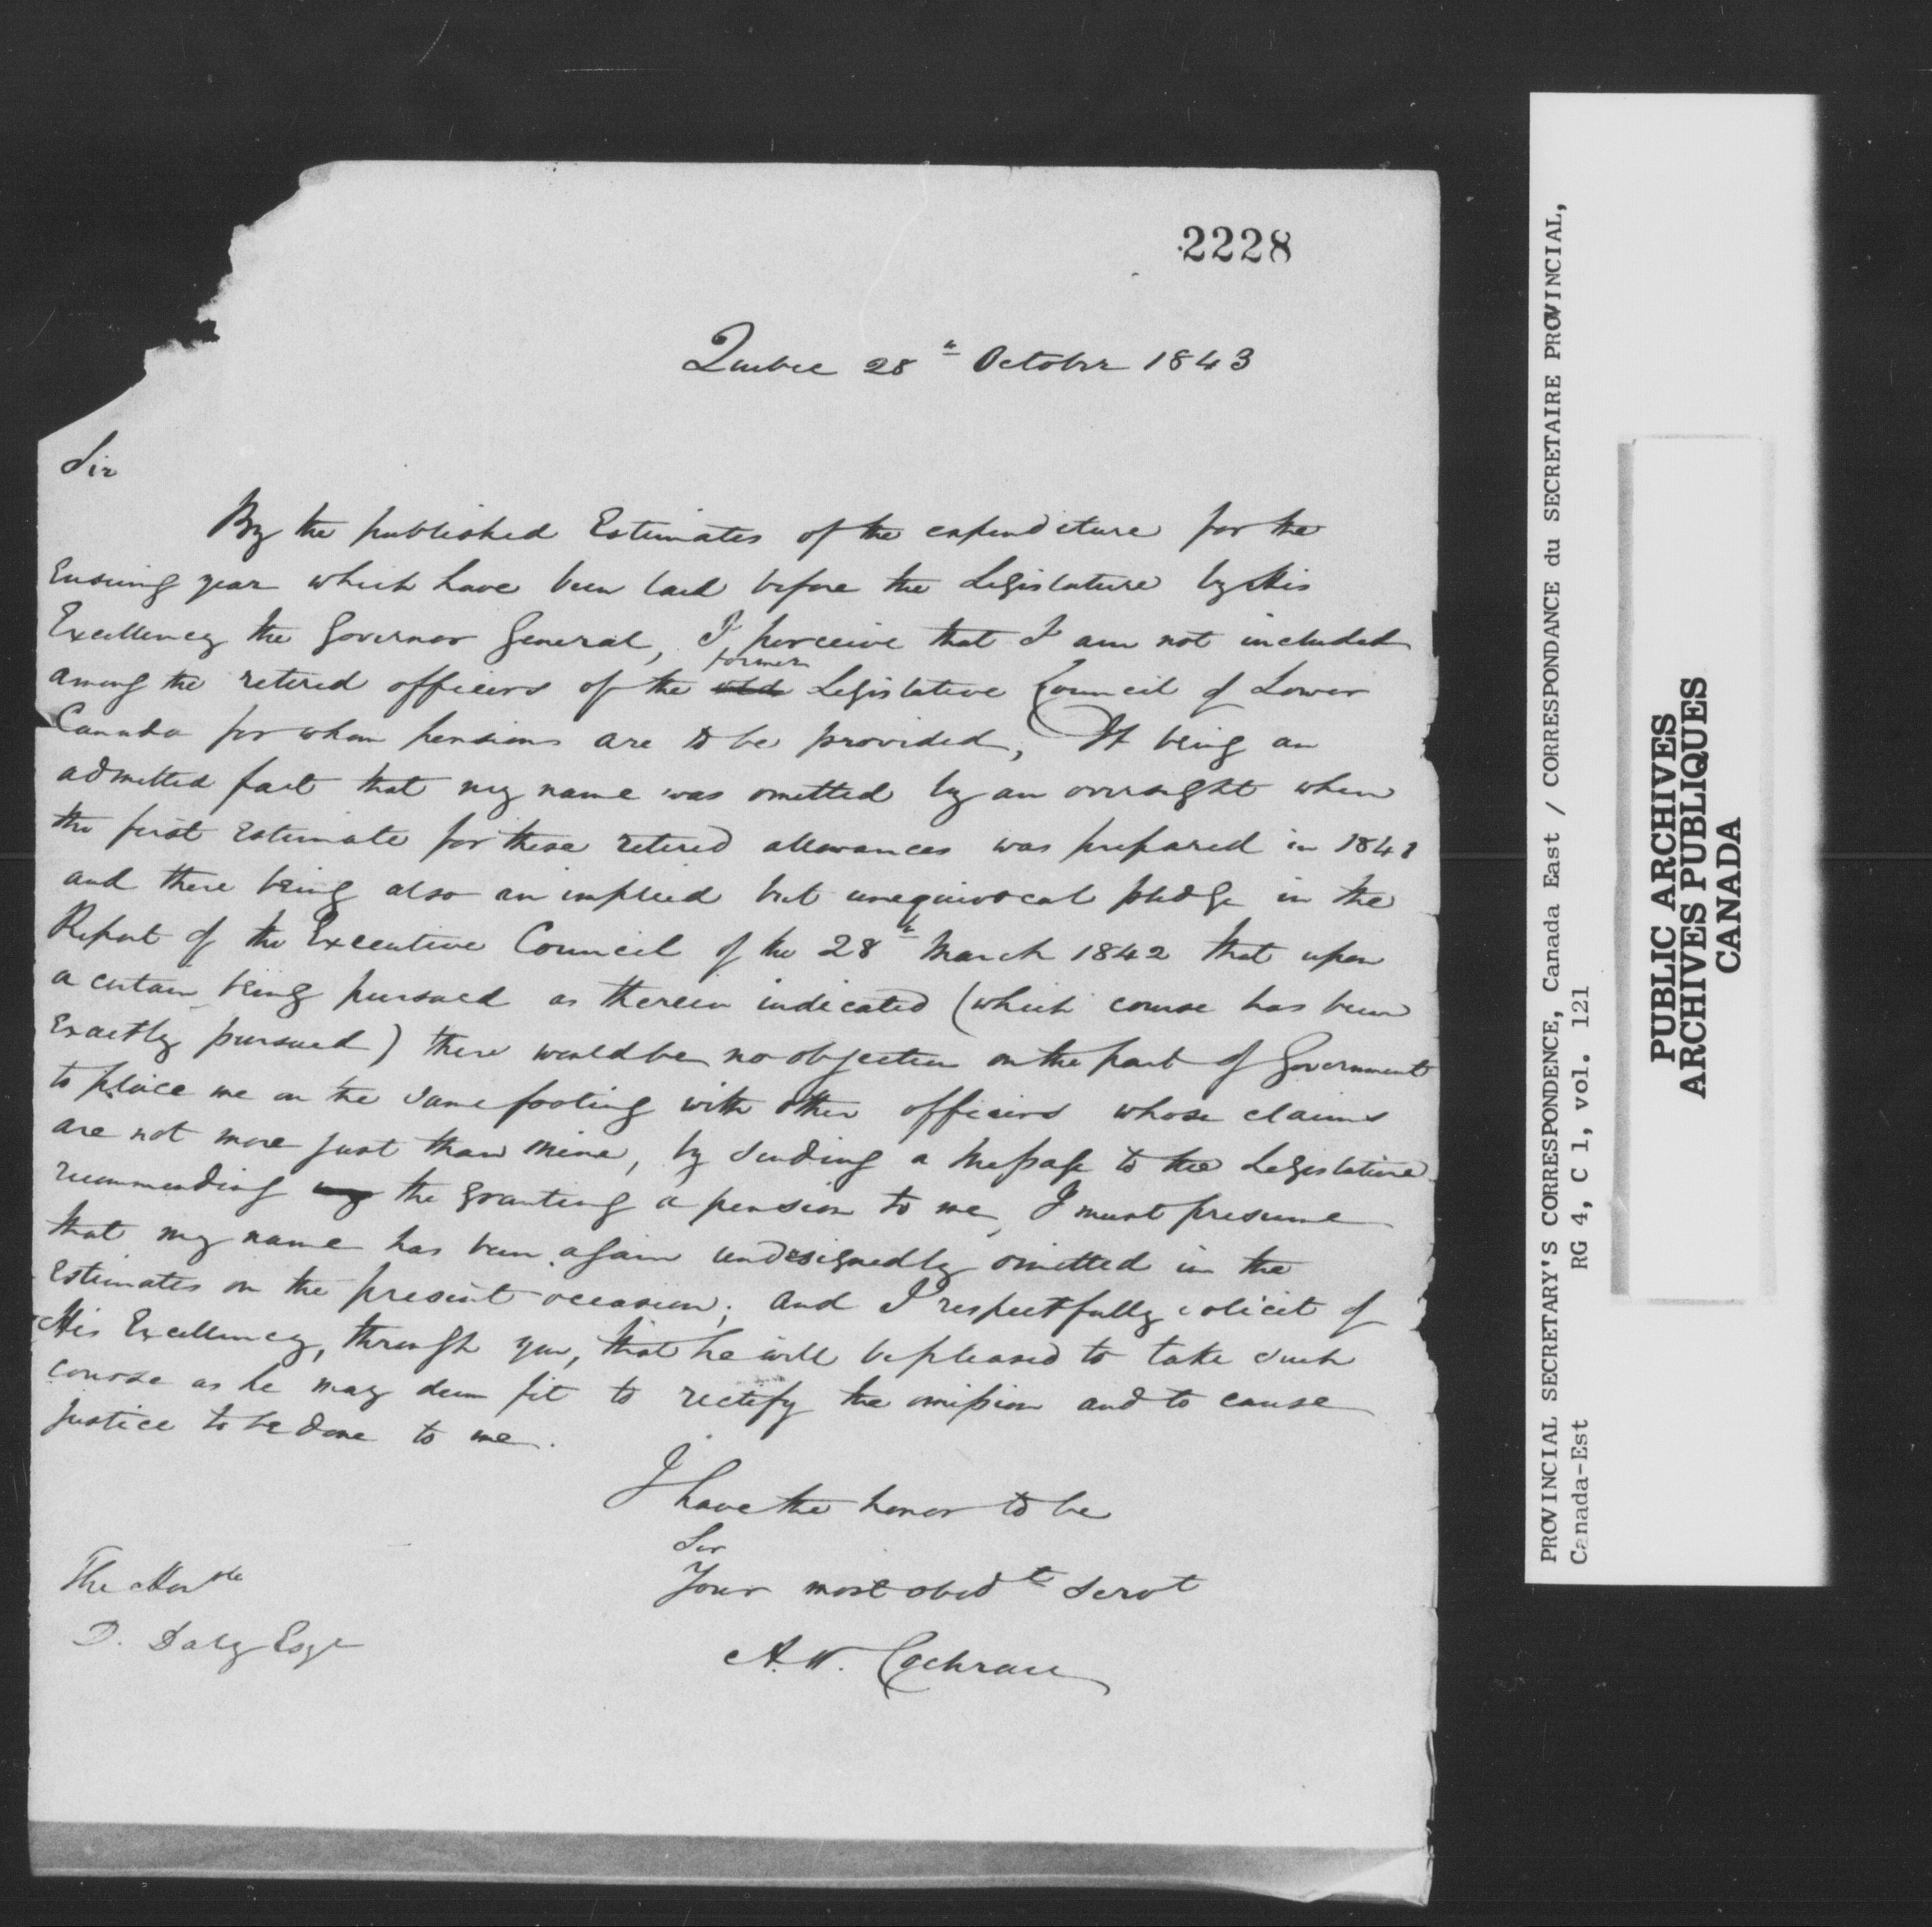 2228
Quebec 28th October 1843
Sir
By the published Estimates of the expenditure for the
Ensuing year which have been laid before the Legislature by His
Excellency the Governor General, I perceive that I am not included
among the retired officers of the old former Legislative Council of Lower
Canada for whom pensions are to be provided, It being an
admitted fact that my name was omitted by an oversight when
the first Estimate for these retired allowances was prepared in 1841
and there being also an implied but unequivocal pledge in the
Report of the Executive Council of the 28th March 1842 that upon
a certain being pursued as therein indicated (which course has been
Exactly pursued) there would be no objection on the part of Government
to place me on the same footing with other officers whose claims
are not more just than mine, by sending a Message to the Legislature
recommending my the granting a pension to me, I must presume
that my name has been again undesignedly omitted in the
Estimates on the present occasion; and I respectfully solicit of
His Excellency, through you, that he will be pleased to take such
course as he may deem fit to rectify the omission and to cause
justice to be done to me.
I have the honor to be
Sir
Your most obedt Servt
A.W. Cochran
The Honble
D. Daly Esqe
PROVINCIAL SECRETARY'S CORRESPONDENCE, Canada East / CORRESPONDANCE du SECRETAIRE PROVINCIAL,
Canada-Est RG 4, C 1, vol. 121
PUBLIC ARCHIVES
ARCHIVES PUBLIQUES
CANADA